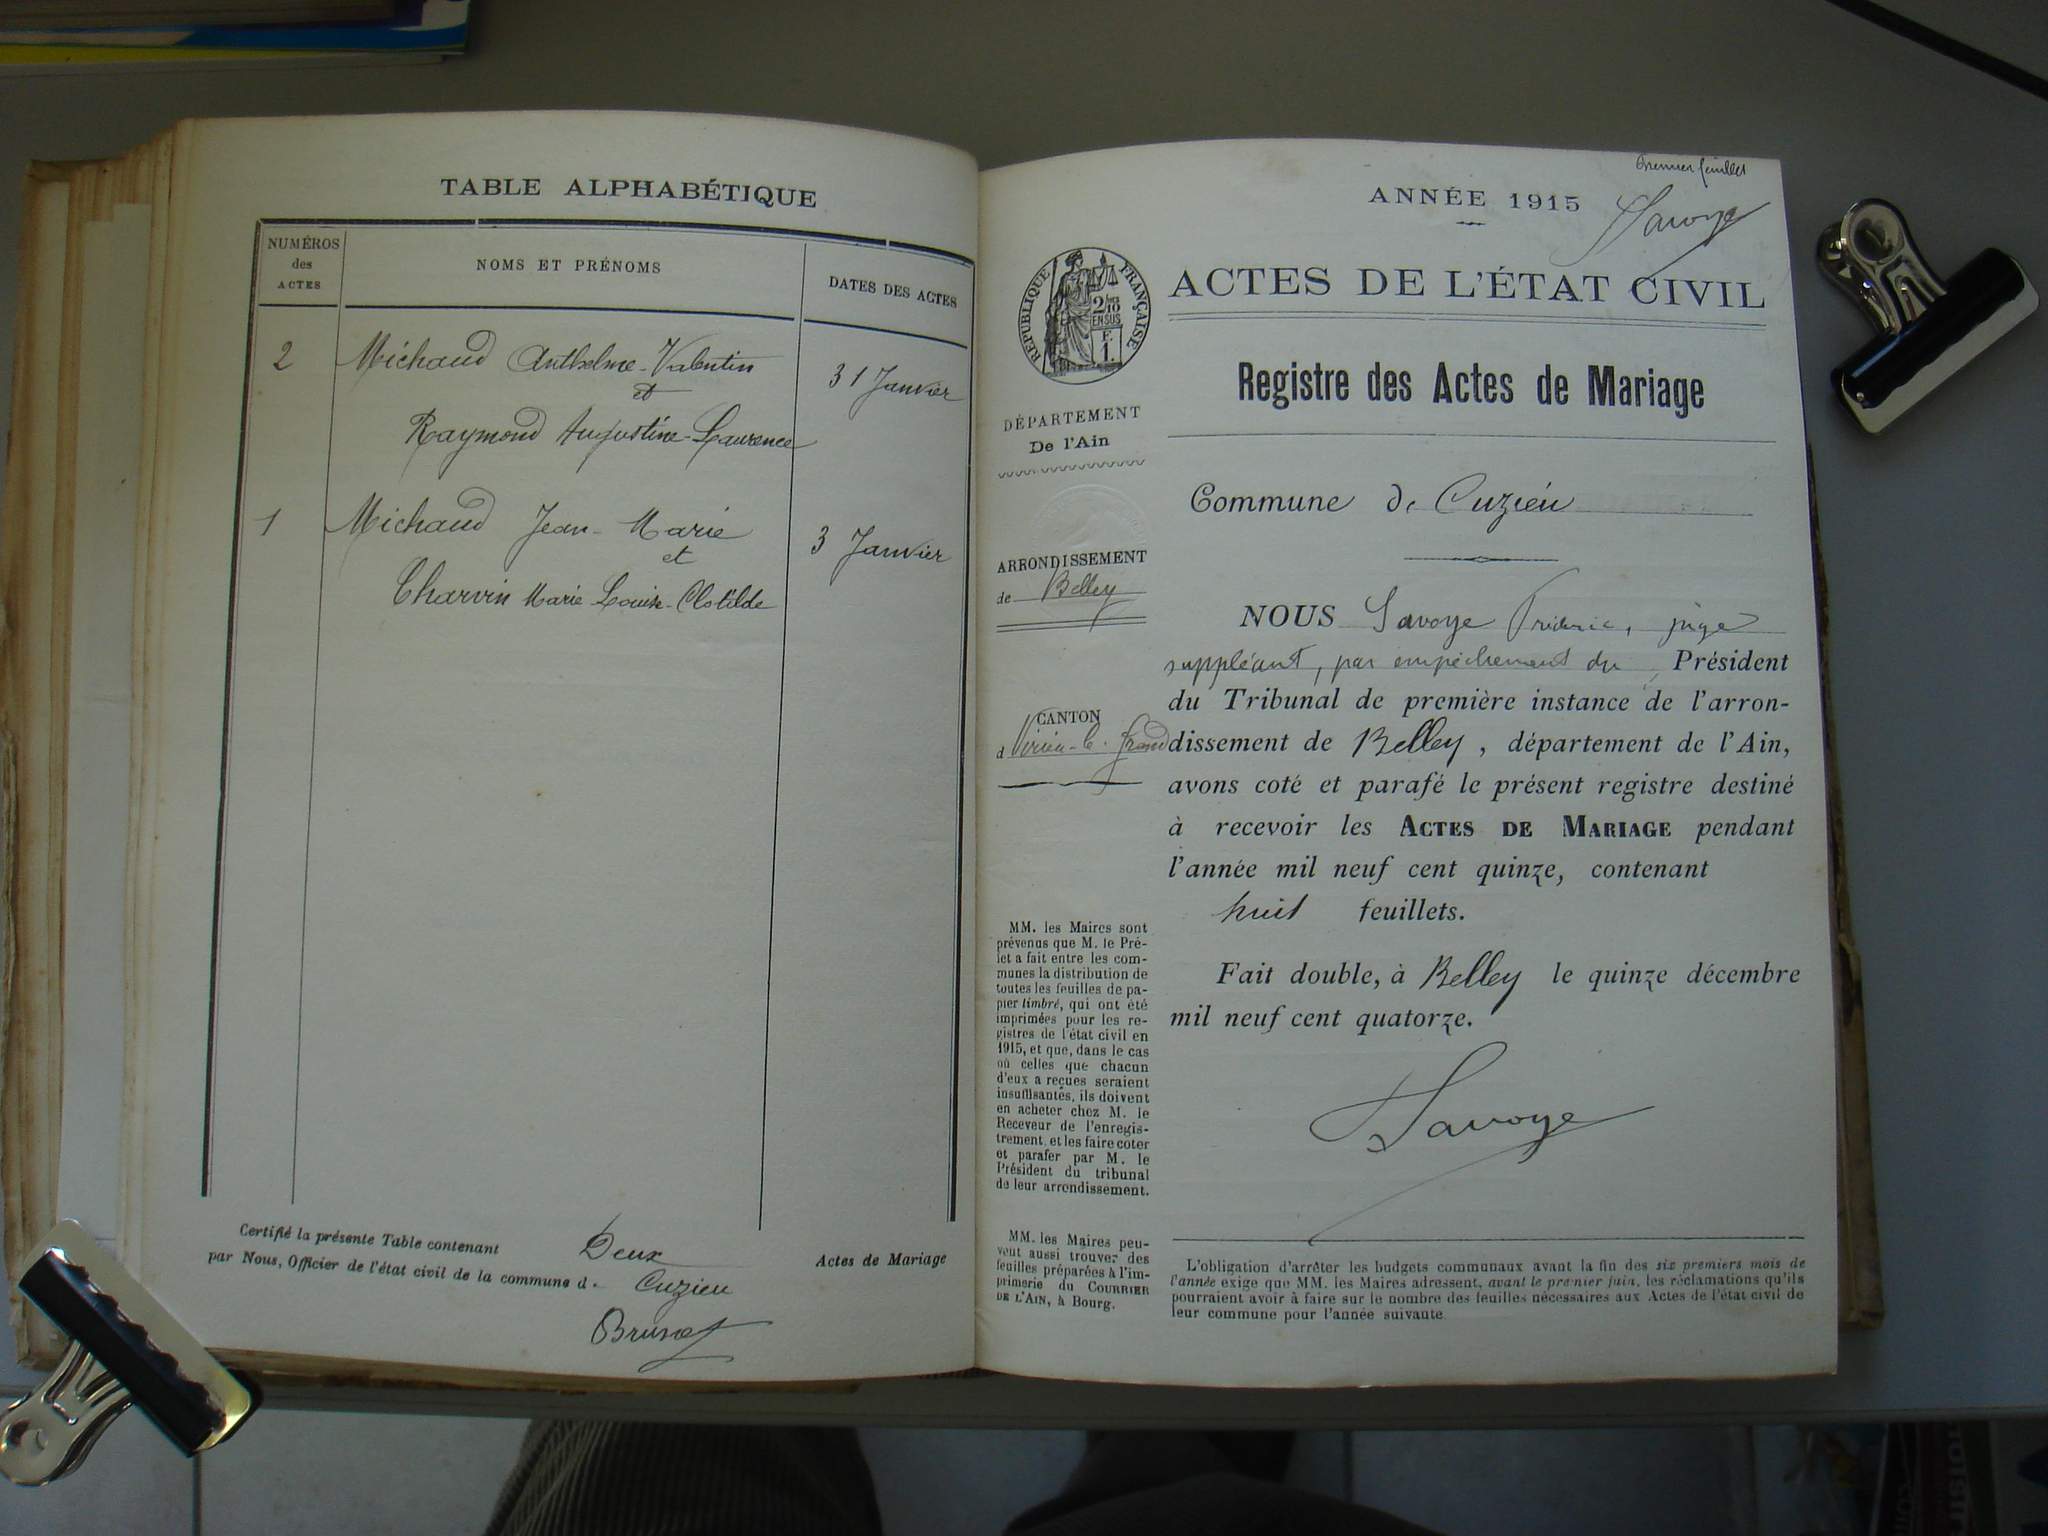 TABLE ALPHABÉTIQUE
NUMÉROS
des
ACTES
NOMS ET PRÉNOMS
DATES DES ACTES
2 Michaud Anthelme-Valentin 31 Janvier
et
Raymond Augustine-Laurence
1 Michaud Jean-Marie 3 Janvier
et
Charvin Marie Louise-Clotilde
Certifié la présente Table contenant Deux Actes de Mariage
par Nous, Officier de l'état civil de la commune d. Cuzieu
Brunet
Premier feuillet
ANNÉE 1915
Savoye
RÉPUBLIQUE FRANÇAISE
ACTES DE L'ÉTAT CIVIL
Registre des Actes de Mariage
DÉPARTEMENT
De l'Ain
ARRONDISSEMENT
de Belley
CANTON
d Virieu-le-Grand
MM. les Maires sont
prévenus que M. le Pré-
fet a fait entre les com-
munes la distribution de
toutes les feuilles de pa-
pier timbré, qui ont été
imprimées pour les re-
gistres de l'état civil en
1915, et que, dans le cas
où celles que chacun
d'eux a reçues seraient
insuffisantes, ils doivent
en acheter chez M. le
Receveur de l'enregis-
trement, et les faire coter
et parafer par M. le
Président du tribunal
de leur arrondissement.
MM. les Maires peu-
vent aussi trouver des
feuilles préparées à l'im-
primerie du COURRIER
DE L'AIN, à Bourg.
Commune de Cuzieu
NOUS Savoye Frédéric, juge
suppléant, par empêchement du Président
du Tribunal de première instance de l'arron-
dissement de Belley, département de l'Ain,
avons coté et parafé le présent registre destiné
à recevoir les ACTES DE MARIAGE pendant
l'année mil neuf cent quinze, contenant
huit feuillets.
Fait double, à Belley le quinze décembre
mil neuf cent quatorze.
Savoye
L'obligation d'arrêter les budgets communaux avant la fin des six premiers mois de
l'année exige que MM. les Maires adressent, avant le premier juin, les réclamations qu'ils
pourraient avoir à faire sur le nombre des feuilles nécessaires aux Actes de l'état civil de
leur commune pour l'année suivante